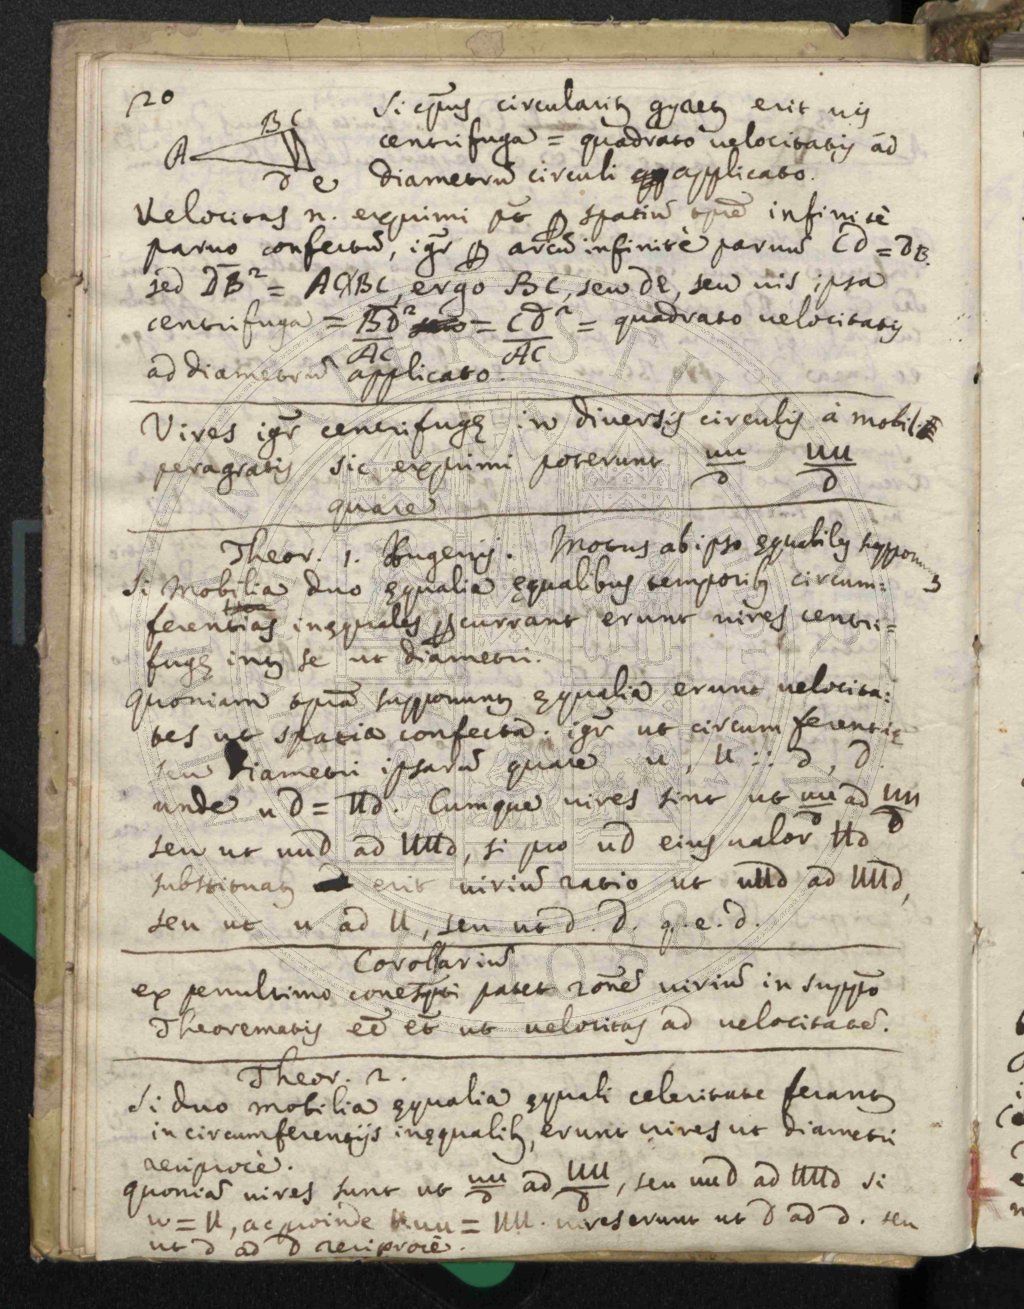 20
B C
A
d e
Si cp̄us circularitʒ gyretʒ erit uis
centrifuga = quadrato uelocitatis ad
diametrū circuli applicato.
Velocitas n. exprimi pt̄ ꝑ spatiū tp̄re infinitè
paruo confectū, igr̄ ꝑ arcū infinitè paruum Cd = DB.
sed DB² = ACBC, ergo BC, seu de, seu uis ipsa
centrifuga = Bd²/AC = Cd²/AC = quadrato uelocitatis
ad diametrū applicato.
Vires igr̄ centrifugę in diuersis circulis à mobili
peragratis sic exprimi poterunt uu/d UU/D
quare
Theor. 1. Hugenij. Motus ab ipso ęquabiles
Si Mobilia duo ęqualia ęqualibus temporibʒ circum:
ferentias inęquales ꝑcurrant erunt uires centri=
fugę intʒ se ut diametri.
Quoniam tp̄ra supponuntʒ ęqualia erunt uelocita:
tes ut spatia confecta. igr̄ ut circumferentię
seu diametri ipsarū quare u, U :: d, D.
unde uD = Ud. Cumque uires sint ut uu/d ad UU/D
seu ut uuD ad UUd, si pro uD eius ualor Ud
substituatʒ erit uiriū ratio ut uUd ad UUd,
seu ut u ad U, seu ut d. D. q. e. d.
Corollariū
ex penultimo patet ronē uiriū in suppto
Theorematis eē ēt ut uelocitas ad uelocitatē.
Theor. 2.
Si duo mobilia ęqualia ęquali celeritate ferantʒ
in circumferentijs inęqualibʒ, erunt uires ut diametri
reciprocè.
Quoniā uires sunt ut uu/d ad UU/D, seu uuD ad UUd si
u = U, ac proinde uu = UU. uires erunt ut D ad d. seu
ut d ad D reciprocè.